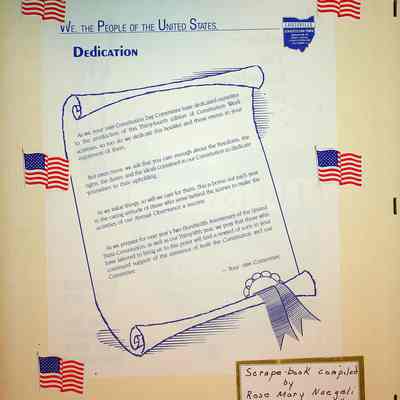 WE, THE PEOPLE OF THE UNITED STATES,
LOUISVILLE
CONSTITUTION TOWN
DEDICATION
As we, Your 1986 Constitution Day Committee have dedicated ourselves
to the production of this Thirty-fourth edition of Constitution Week
activities, so too do we dedicate this booklet and those events to your
enjoyment of them.
But even more, we ask that you care enough about the freedoms, the
rights, the duties and the ideals contained in our Constitution to dedicate
yourselves to their upholding.
As we value things, so will we care for them. This is borne out each year
in the caring attitude of those who serve behind the scenes to make the
activities of our Annual Observance a success.
As we prepare for next year's Two Hundredth Anniversary of the United
States Constitution, as well as our Thirty-fifth year, we pray that those who
have labored to bring us to this point will find a reward of sorts in your
continued support of the existence of both the Constitution and our
Committee.
— Your 1986 Committee
Scrape-book compiled
by
Rose Mary Naegeli